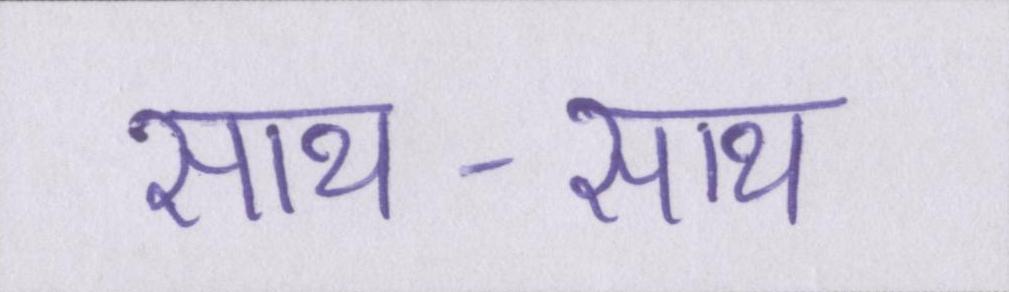 साथ-साथ